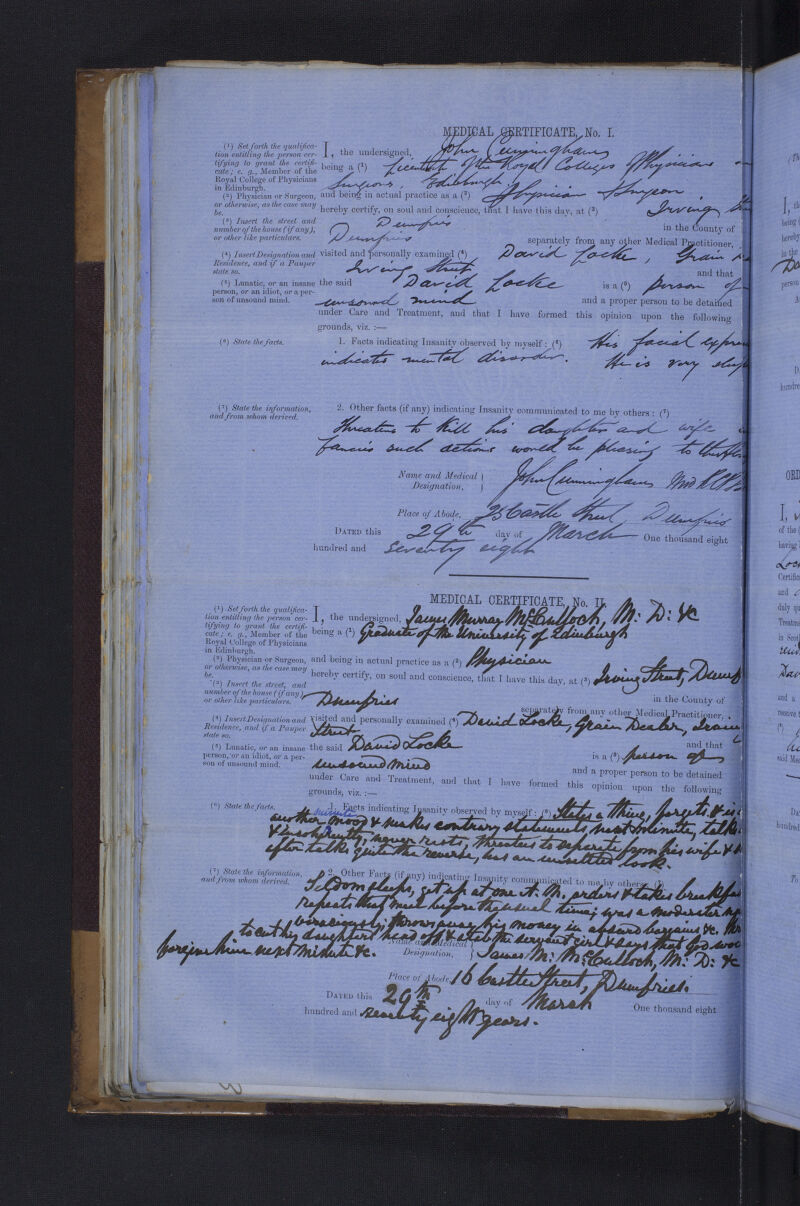 MEDICAL CERTIFICATE, No. I.
(1) Set forth the qualifica-
tion entitling the person cer-
tifying to grant the certifi-
cate; e. g., Member of the
Royal College of Physicians
in Edinburgh.
(2) Physician or Surgeon,
or otherwise, as the case may
be.
(3) Insert the street and
number of the house (if any),
or other like particulars.
(4) Insert Designation and
Residence, and if a Pauper
state so.
(5) Lunatic, or an insane
person, or an idiot, or a per-
son of unsound mind.
(6) State the facts.
(7) State the information,
and from whom derived.
I, the undersigned, John Cunningham
being a (1) Licentiate of the Royal Colleges of Physicians
Surgeons, Edinburgh
and being in actual practice as a (2) Physician Surgeon
hereby certify, on soul and conscience, that I have this day, at (3) Irving
Dumfries in the County of
Dumfries separately from any other Medical Practitioner,
visited and personally examined (4) David Locke, Grain
Irving Street and that
the said David Locke is a (5) person of
unsound mind and a proper person to be detained
under Care and Treatment, and that I have formed this opinion upon the following
grounds, viz. :—
1. Facts indicating Insanity observed by myself : (6) His facial
indicates mental disorder. He is very
2. Other facts (if any) indicating Insanity communicated to me by others : (7)
Threatens to kill his daughter and wife
fancies such actions would be pleasing to
Name and Medical Designation, John Cunningham
Place of Abode, 25 Castle Street, Dumfries
DATED this 29th day of March One thousand eight
hundred and seventy eight
MEDICAL CERTIFICATE, No. II.
(1) Set forth the qualifica-
tion entitling the person cer-
tifying to grant the certifi-
cate; e. g., Member of the
Royal College of Physicians
in Edinburgh.
(2) Physician or Surgeon,
or otherwise, as the case may
be.
(3) Insert the street, and
number of the house (if any)
or other like particulars.
(4) Insert Designation and
Residence, and if a Pauper
state so.
(5) Lunatic, or an insane
person, or an idiot, or a per-
son of unsound mind.
(6) State the facts.
(7) State the information,
and from whom derived.
I, the undersigned, James Murray McCulloch, M: D: &c
being a (1) Graduate of the University of Edinburgh
and being in actual practice as a (2) Physician
hereby certify, on soul and conscience, that I have this day, at (3) Irving Street,
Dumfries in the County of
separately from any other Medical Practitioner,
visited and personally examined (4) David Locke, Grain Dealer,
Street and that
the said David Locke is a (5) person of
unsound mind and a proper person to be detained
under Care and Treatment, and that I have formed this opinion upon the following
grounds, viz. :—
1. Facts indicating Insanity observed by myself : (6) States a thing, forgets it
another minute & makes contrary statements, next minute, talks
never rests, threatens to separate from his wife &
often talks quite the reverse, has an unsettled look.
2. Other Facts (if any) indicating Insanity communicated to me by others: (7)
Seldom sleeps, get up at one A. M. orders & takes
repeats that meal before the usual time; was a moderate
voraciously; throws away his money in absurd bargains &c.
to cut his daughter's head off & stab the servant girl & says that God
forgive him next minute &c.
Name and Medical Designation, James M: McCulloch, M: D: &c
Place of Abode, 16 Castle Street, Dumfries.
DATED this 29th day of March One thousand eight
hundred and seventy eight years.